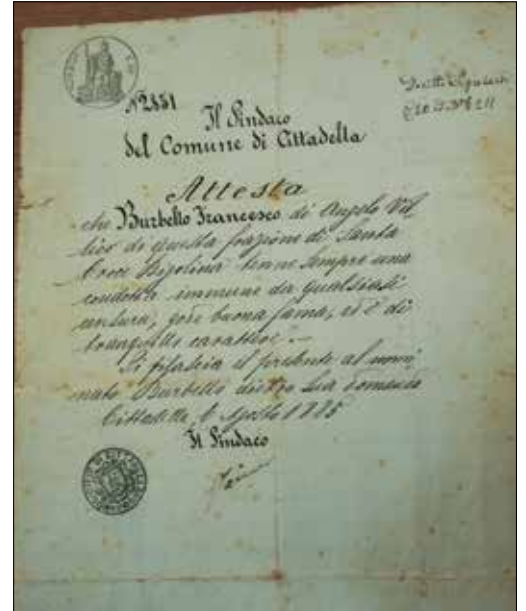 N 2551
Il Sindaco
del Comune di Cittadella
Attesta
che Burbello Francesco di Angelo Vil
lico di questa frazione di Santa
Croce Bigolina tenne sempre una
condotta immune da qualsiasi
censura, gode buona fama, ed è di
tranquillo carattere.
Si rilascia il presente al nomi
nato Burbello dietro sua domanda
Cittadella, 6 Agosto 1885
Il Sindaco